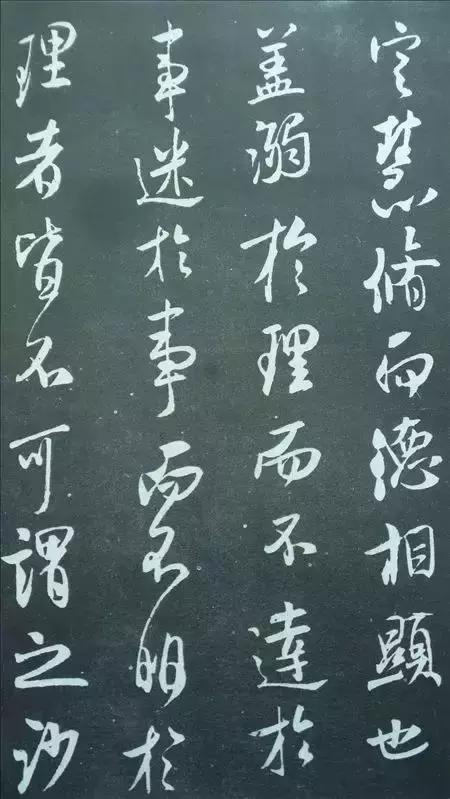 定慧脩而德相顯也
盖溺於理而不達於
事迷於事而不明於
理者皆不可謂之沙